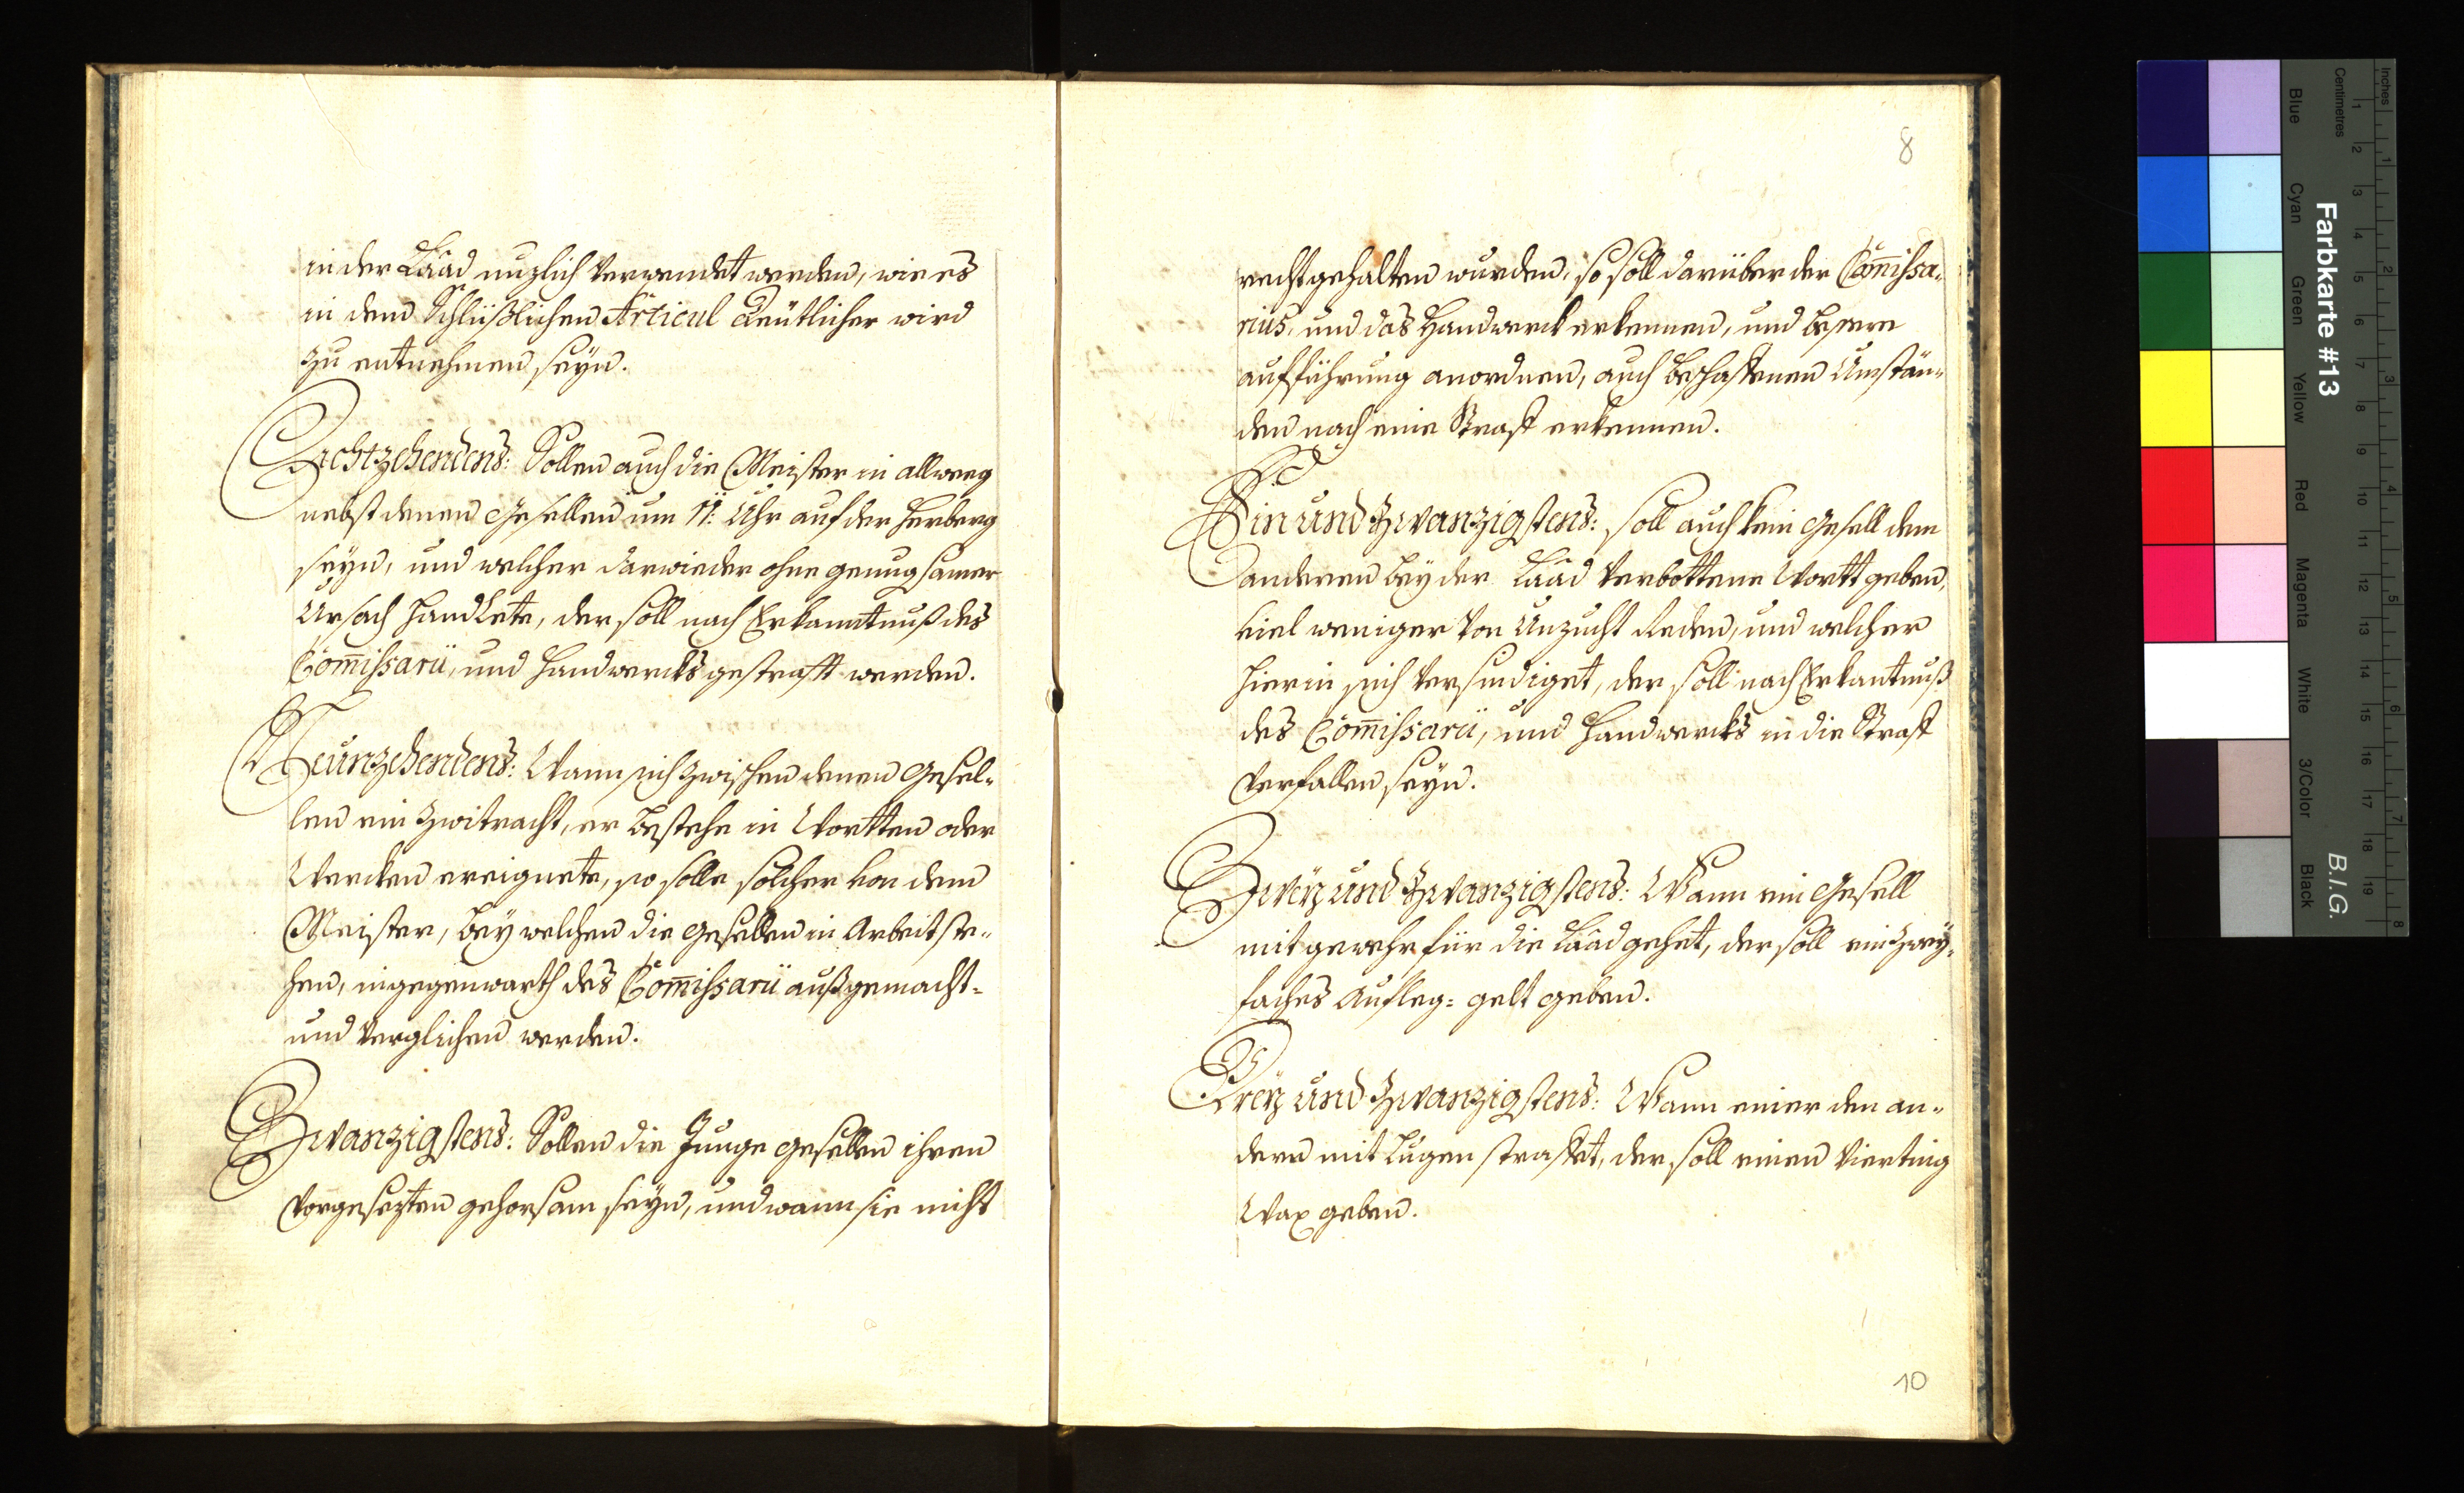 in der Lââd nuzlich verwendet werden, wie es
in dem Schlüßlichen Articul deutlicher wird
zu entnehmen seÿn.
Achtzehendens: Sollen auch die Meister in allweeg
nebst denen Gesellen um 11: Uhr auf der Herberg
seÿn, und welcher darwieder ohne genugsamer
Ursach handlete, der soll nach Erkanntnuß des
Com̄issarii, und Handwercks gestrafft werden.
Neunzehendens: Wann sich zwischen denen Gesel-
len ein Zwitracht, er bestehe in Wortten oder
Wercken ereignete, so solle solcher von dem
Meister, beÿ welchen die Gesellen in Arbeit ste-
hen, in gegenwarth des Com̄issarii außgemacht-
und verglichen werden.
Zwanzigstens: Sollen die Junge gesellen ihren
vorgesezten gehorsam seÿn, und wann sie nicht
8
recht gehalten wurden, so soll darüber der Com̄issa-
rius, und das Handwerck erkennen, und bessere
aufführung anordnen, auch beschaffenen Umstän-
den nach eine Straff erkennen.
Ein und Zwanzigstens: soll auch kein Gesell dem
anderen beÿ der Lââd verbottene Wortt geben,
viel weniger von Unzucht reden, und welcher
hierin sich versündiget, der soll nach Erkantnuß
des Com̄issarii, und Handwercks in die Straff
verfallen seÿn.
Zweÿ und Zwanzigstens: Wann ein Gesell
mit gewehr für die Lââd gehet, der soll ein zweÿ-
faches Aufleg-gelt geben.
Dreÿ und Zwanzigstens: Wann einer den an-
dern mit Lugen straffet, der soll einen Vierting
Wax geben.
10
Inches
Centimetres
Farbkarte #13
B.I.G.
Blue
Cyan
Green
Yellow
Red
Magenta
White
3/Color
Black